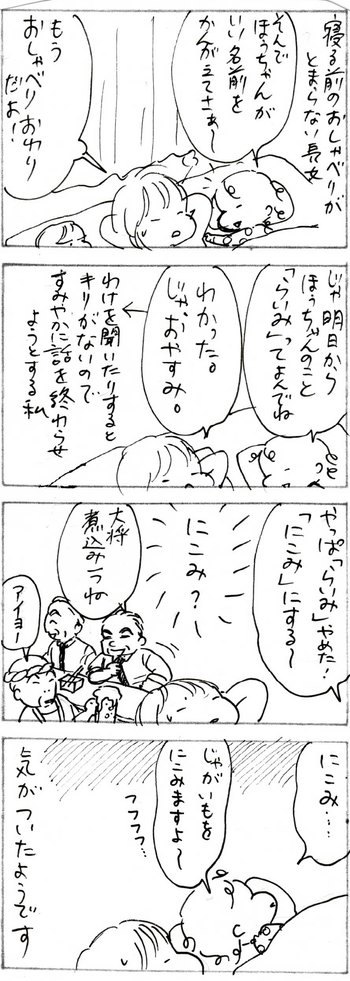 寝る前のおしゃべりが
とまらない長女
そんで
ほぅちゃんが
いい名前を
かんがえてさぁ〜
もう
おしゃべりおわり
だよ!
じゃ明日から
ほぅちゃんのこと
「らいみ」ってよんでね
わかった。
じゃ、おやすみ。
わけを聞いたりすると
キリがないので
すみやかに話を終わらせ
ようとする私
やっぱ「らいみ」やめた!
「にこみ」にする〜
にこみ?
大将
煮込み一つね
アイヨー
にこみ……
じゃがいもを
にこみますよ〜
フフフフ…
気がついたようです